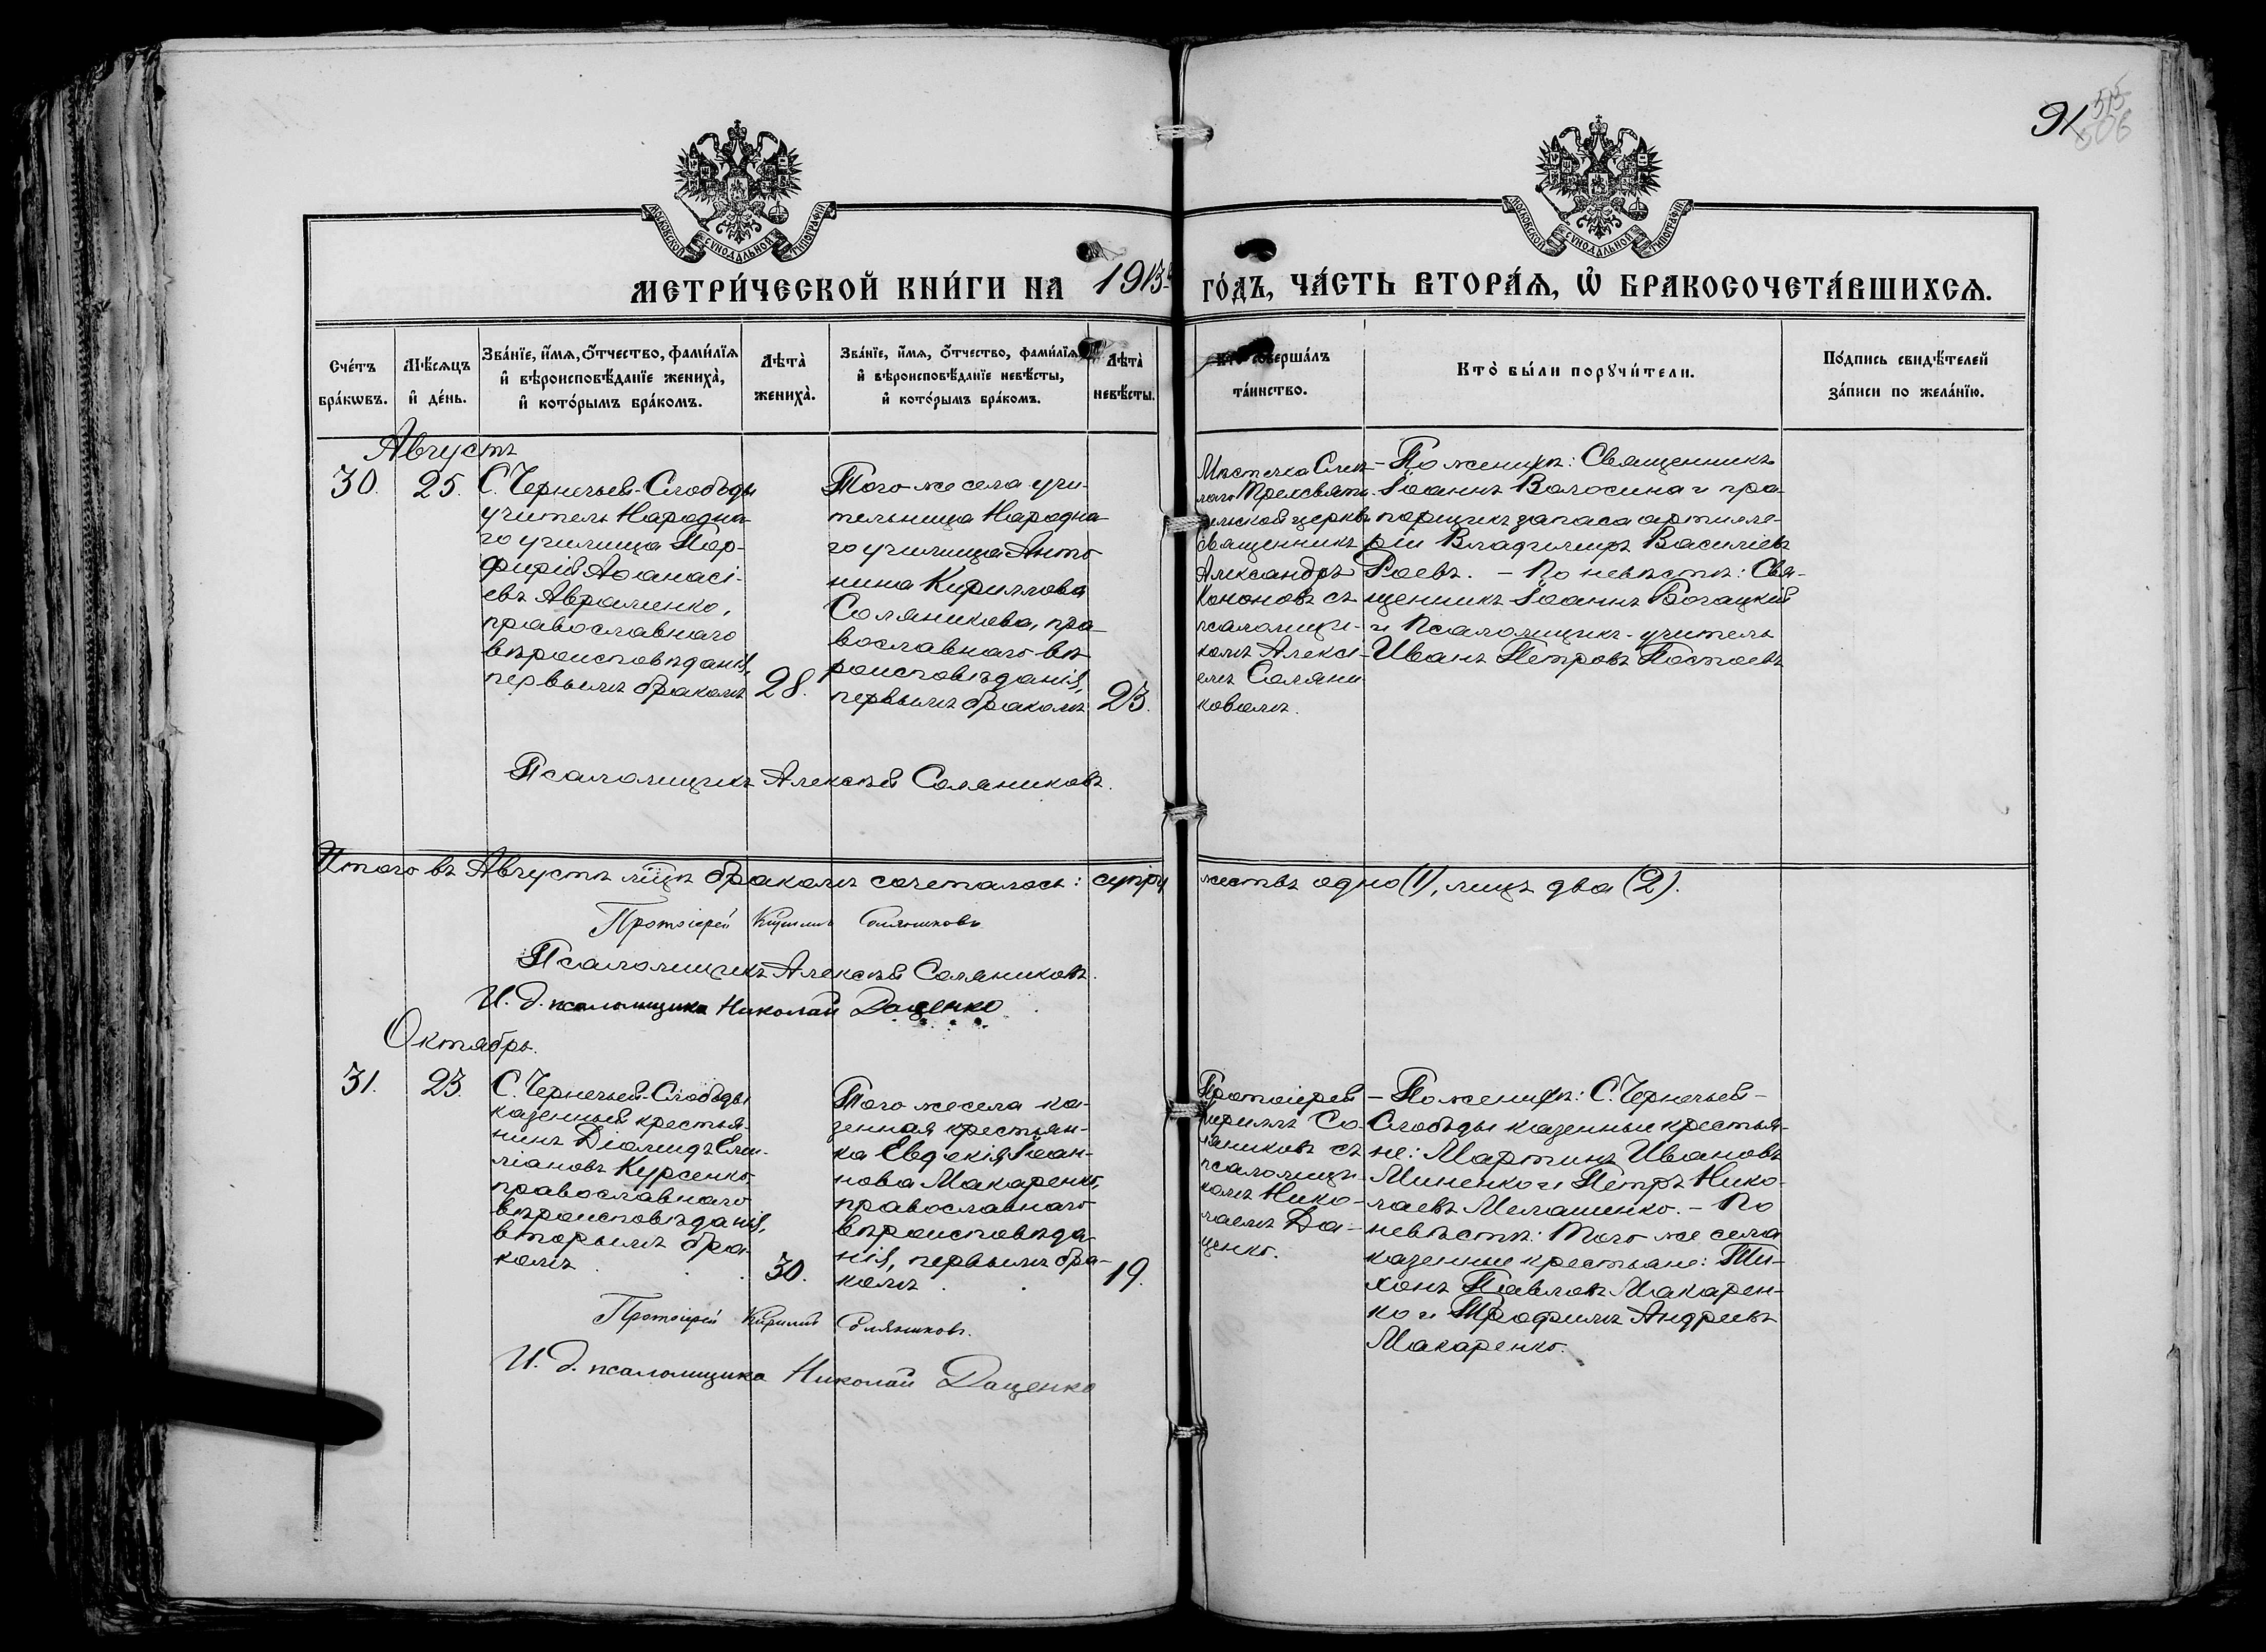 91
515
506
МОСКОВСКОЙ СѴНОДАЛЬНОЙ ТИПОГРАФІИ
МОСКОВСКОЙ СѴНОДАЛЬНОЙ ТИПОГРАФІИ
МЕТРИ́ЧЕСКОЙ КНИ́ГИ НА 1913й ГО́ДЪ, ЧА́СТЬ ВТОРА́Ѧ, Ѡ҆ БРАКОСОЧЕТА́ВШИХСѦ.
Сче́тъ
бра́кѡвъ.
Мѣ́сѧцъ
и҆ де́нь.
Зва́нїе, и҆́мѧ, ѻ҆́тчество, фами́лїѧ
и҆ вѣроисповѣ́данїе жениха̀,
и҆ кото́рымъ бра́комъ.
Лѣта̀
жениха̀.
Зва́нїе, и҆́мѧ, ѻ҆́тчество, фами́лїѧ
и҆ вѣроисповѣ́данїе невѣ́сты,
и҆ кото́рымъ бра́комъ.
Лѣта̀
невѣ́сты.
Кто̀ соверша́лъ
та́инство.
Кто̀ бы́ли порꙋчи́тели.
По́дпись свидѣ́телей
за́писи по жела́нїю.
Августъ
30.
25.
С. Чернечьей-Слободы
учитель Народна-
го училища Пор-
фирій Аѳанасі-
евъ Авраменко,
православнаго
вѣроисповѣданія,
первымъ бракомъ
28.
Того же села учи-
тельница Народна-
го училища Анто-
нина Кириллова
Соляникова, пра-
вославнаго вѣ-
роисповѣданія,
первымъ бракомъ.
23.
Мѣстечка Смѣ-
лаго Трехсвяти-
тельской церкви
священникъ
Александръ
Кононовъ съ
псаломщи-
комъ Алексі-
емъ Соляни
ковымъ.
– По женихѣ: Священникъ
Іоаннъ Волосина и пра-
порщикъ запаса артилле-
ріи Владимиръ Василіевъ
Раевъ. – По невѣстѣ: Свя-
щенникъ Іоаннъ Богацкій
и Псаломщикъ-учитель
Иванъ Петровъ Постоевъ
Псаломщикъ Алексѣй Соляниковъ.
Итого въ Августѣ мцѣ бракомъ сочеталось: супружествъ одно (1), лицъ два (2).
Протоіерей Кириллъ Соляниковъ
Псаломщикъ Алексѣй Соляниковъ.
И. д. псаломщика Николай Даценко
Октябрь.
31.
23.
С. Чернечьей-Слободы
казенный крестья-
нинъ Діомидъ Еми-
ліановъ Курсенко,
православнаго
вѣроисповѣданія,
вторымъ бра-
комъ.
30.
Того же села ка-
зенная крестьян-
ка Евдокія Іоан-
нова Макаренко,
православнаго
вѣроисповѣда-
нія, первымъ бра-
комъ.
19.
Протоіерей
Кириллъ Со-
ляниковъ съ
псаломщи-
комъ Нико-
лаемъ Да-
ценко.
– По женихѣ: С. Чернечьей-
Слободы казенные крестья-
не: Мартинъ Ивановъ
Миненко и Петръ Нико-
лаевъ Мелашенко. – По
невѣстѣ: Того же села
казенные крестьяне: Ти-
хонъ Павловъ Макарен-
ко и Трофимъ Андреевъ
Макаренко.
Протоіерей Кириллъ Соляниковъ.
И. д. псаломщика Николай Даценко